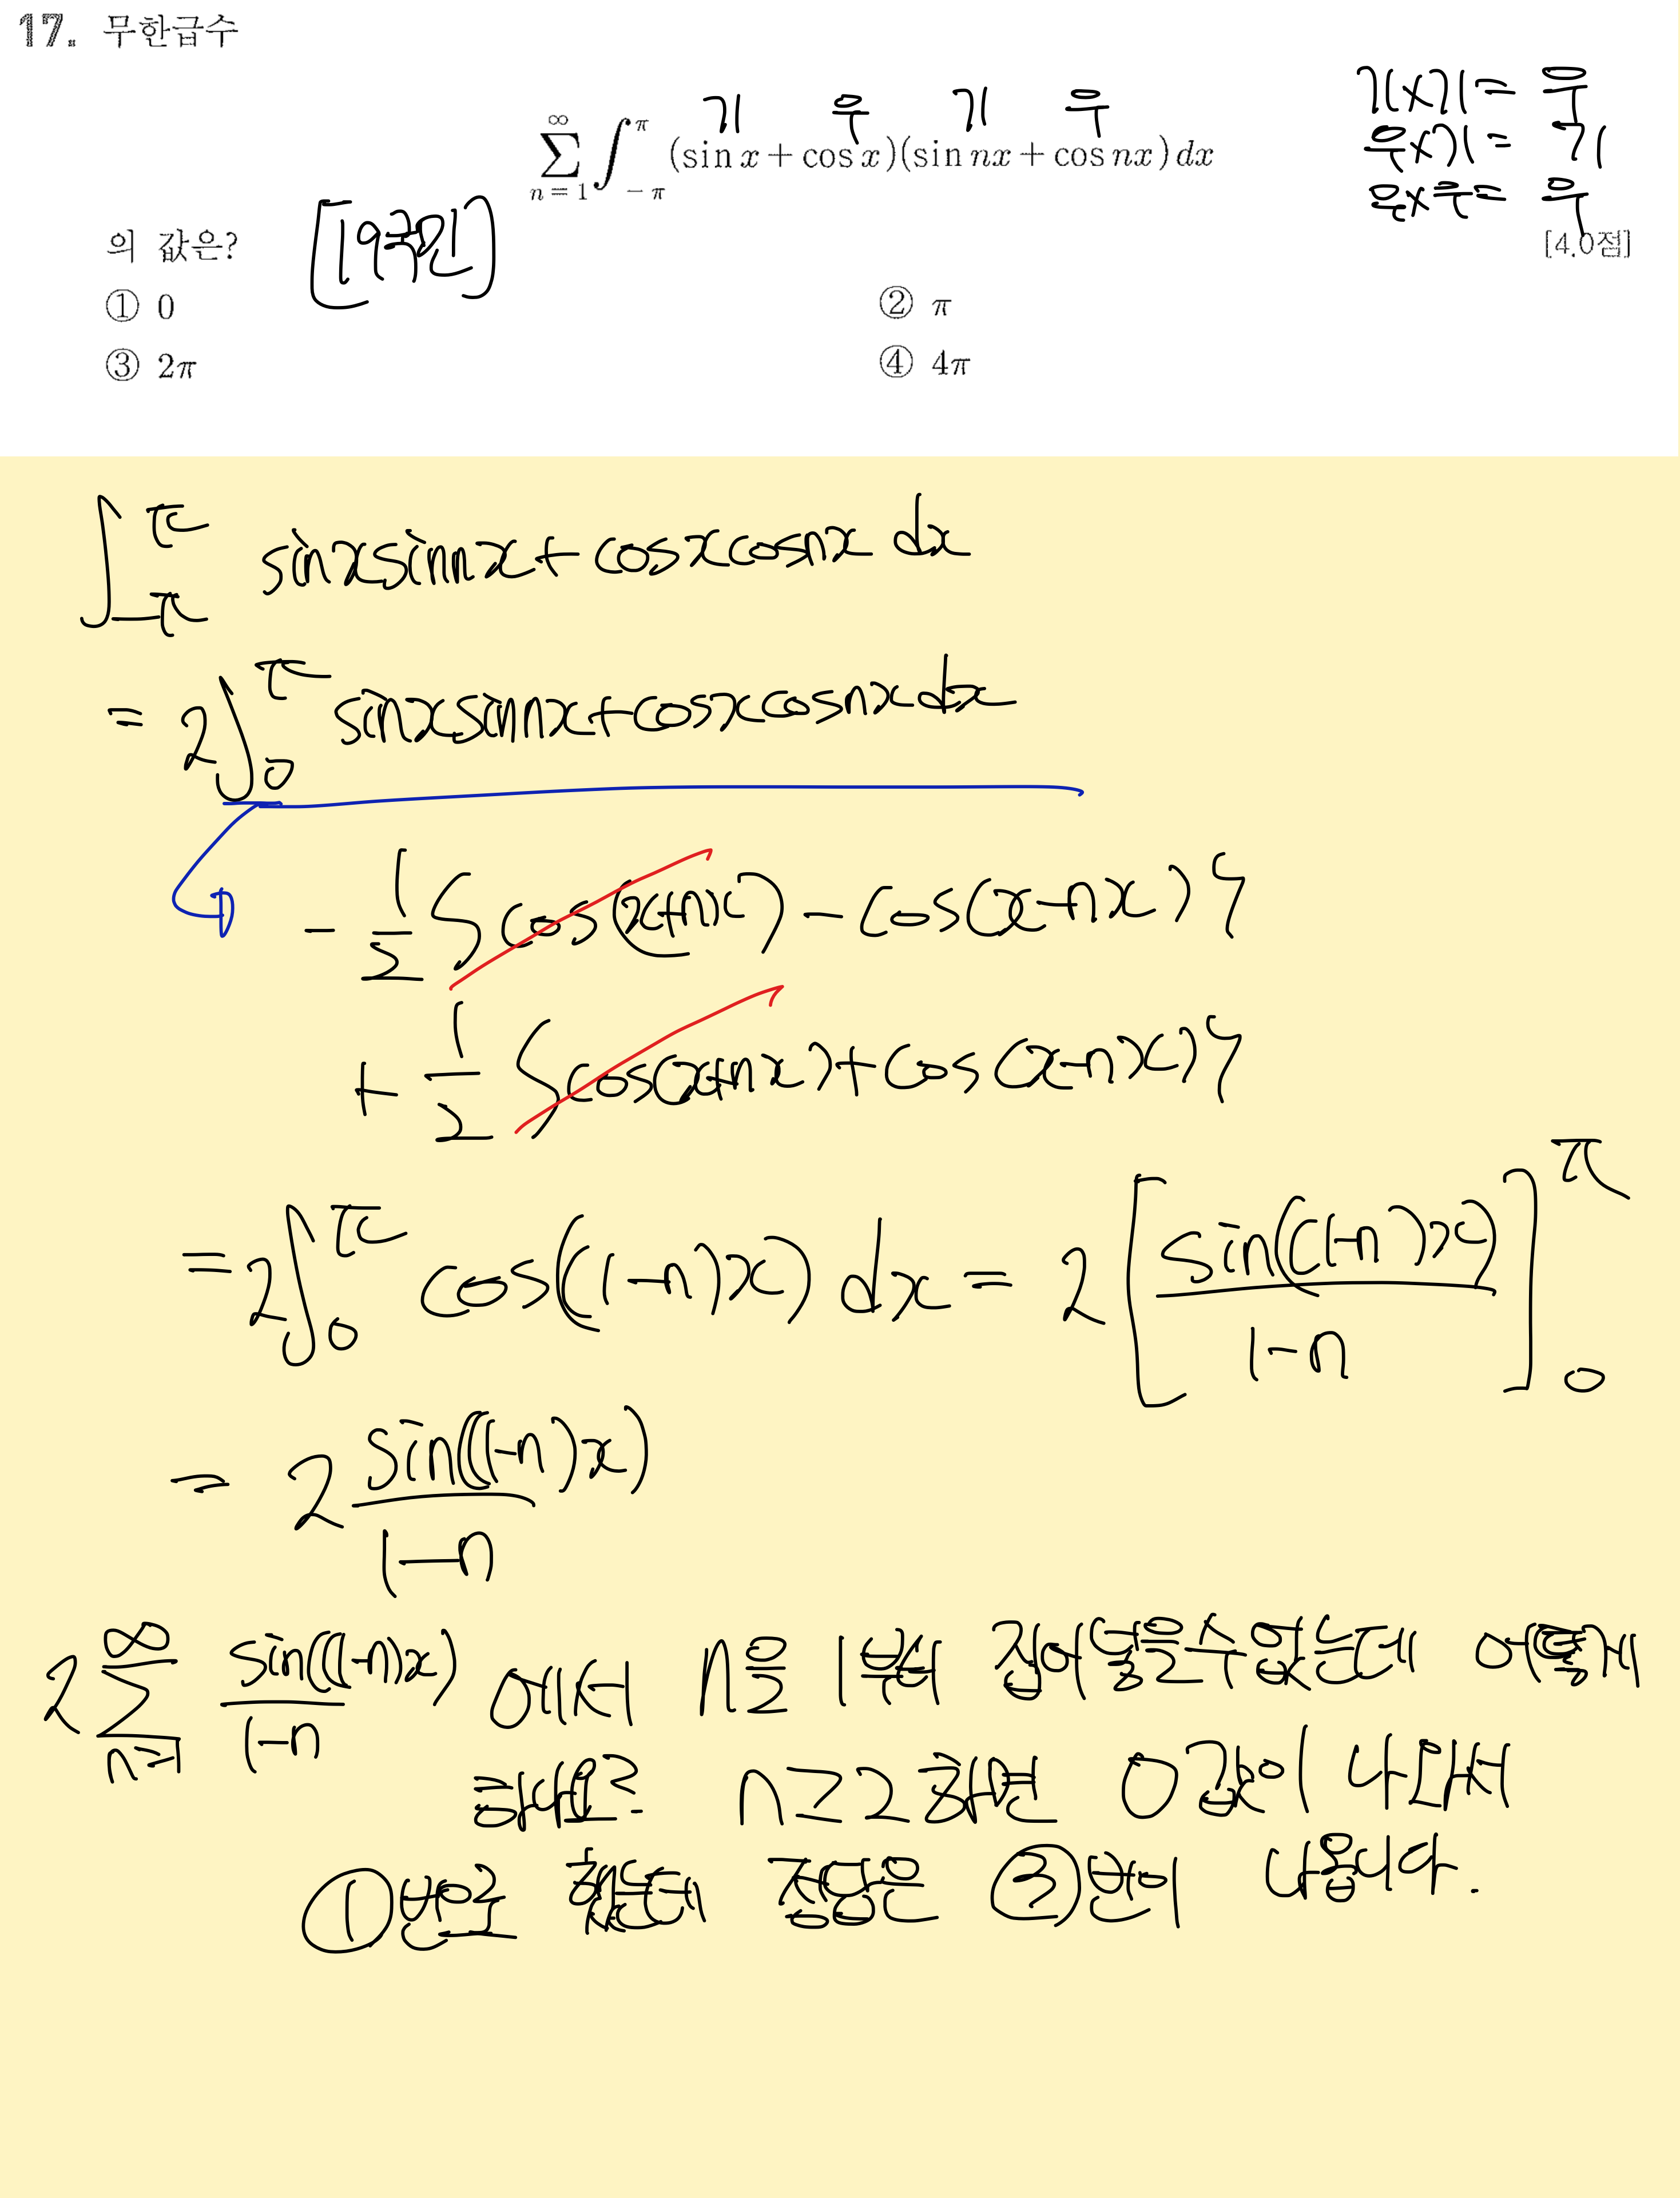 17. 무한급수
기 우 기 우
기×기= 우
우×기= 기
우×우= 우
∞ Σ n=1 ∫ -π π (sin x + cos x)(sin nx + cos nx) dx
의 값은? [19국민] [4.0점]
① 0 ② π
③ 2π ④ 4π
∫ -π π sinxsinnx+cosxcosnx dx
= 2∫ 0 π sinxsinnx+cosxcosnxdx
- 1/2 {cos(x+nx) - cos(x-nx)}
+ 1/2 {cos(x+nx)+cos(x-nx)}
= 2∫ 0 π cos((1-n)x) dx = 2 [ sin((1-n)x) / 1-n ] 0 π
= 2 sin((1-n)x) / 1-n
2 ∞ Σ n=1 sin((1-n)x) / 1-n 에서 n을 1부터 집어넣을수없는데 어떻게
하나요? n≥2하면 0값이 나와서
①번으로 했는데 정답은 ③번이 나옵니다.